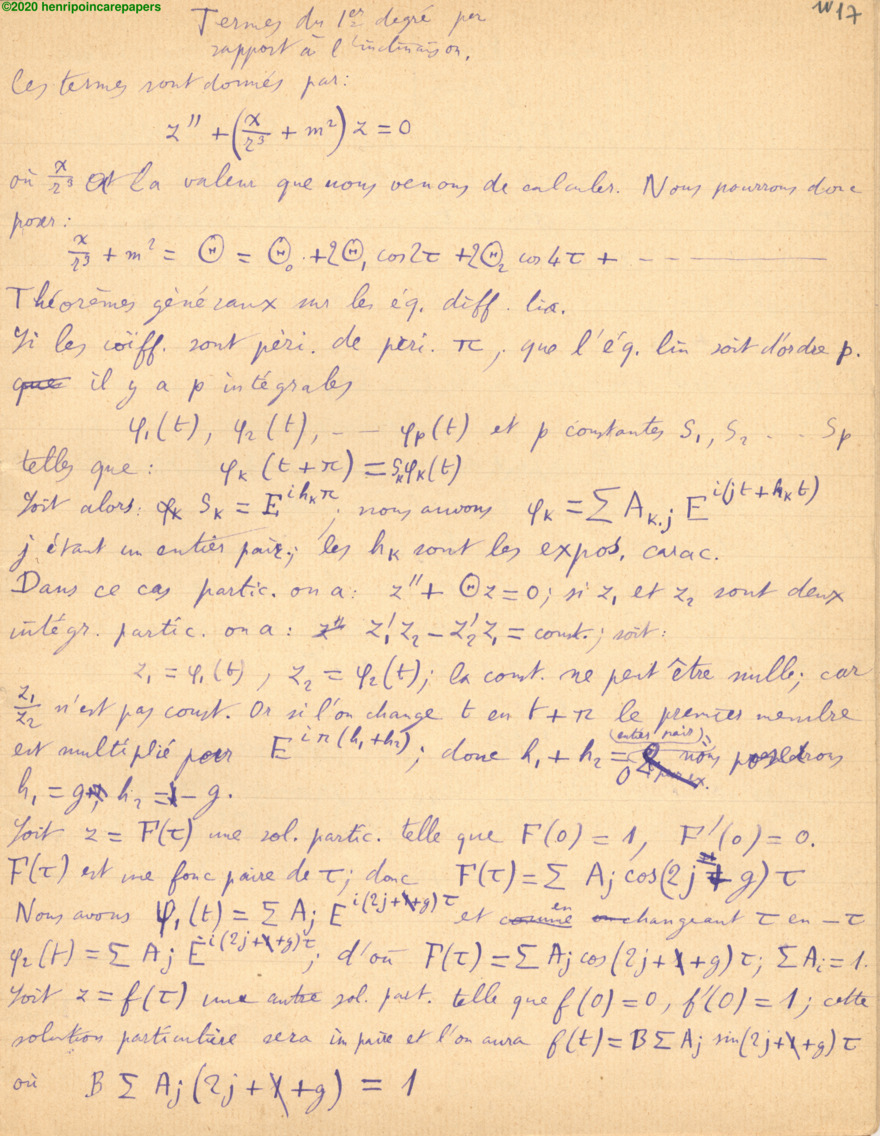 ©2020 henripoincarepapers
17
Termes du 1er degré par
rapport à l'inclinaison.
Ces termes sont donnés par:
z'' + (x/r³ + m²) z = 0
où x/r³ est la valeur que nous venons de calculer. Nous pourrons donc
poser:
x/r³ + m² = Θ = Θ₀ + 2Θ₁ cos 2τ + 2Θ₂ cos 4τ + - - ———
Théorèmes généraux sur les éq. diff. lin.
Si les coëff. sont péri. de péri. π, que l'éq. lin soit d'ordre p.
que il y a p intégrales
φ₁(t), φ₂(t), - - φp(t) et p constantes S₁, S₂ . . . Sp
telles que: φk (t + π) = Sk φk(t)
Soit alors: φk Sk = E^{i hk π}; nous aurons φk = Σ A_{k.j} E^{i(jt + hk t)}
j étant un entier pair; les hk sont les expos. carac.
Dans ce cas partic. on a: z'' + Θz = 0; si z₁ et z₂ sont deux
intégr. partic. on a: z'' z₁'z₂ - z₂'z₁ = const.; soit:
z₁ = φ₁(t), z₂ = φ₂(t); la const. ne peut être nulle; car
z₁/z₂ n'est pas const. Or si l'on change t en t + π le premier membre
est multiplié par E^{iπ(h₁+h₂)}; donc h₁ + h₂ = 0 (entier pair); nous prendrons
h₁ = g, h₂ = - g.
Soit z = F(τ) une sol. partic. telle que F(0) = 1, F'(0) = 0.
F(τ) est une fonc paire de τ; donc F(τ) = Σ Aj cos(2j + g) τ
Nous avons φ₁(t) = Σ Aj E^{i(2j+1+g)τ} et comme en changeant τ en -τ
φ₂(t) = Σ Aj E^{-i(2j+1+g)τ}; d'où F(τ) = Σ Aj cos(2j + 1 + g) τ; Σ Ai = 1.
Soit z = f(τ) une autre sol. part. telle que f(0) = 0, f'(0) = 1; cette
solution particulière sera impaire et l'on aura f(t) = B Σ Aj sin(2j + 1 + g) τ
où B Σ Aj (2j + 1 + g) = 1